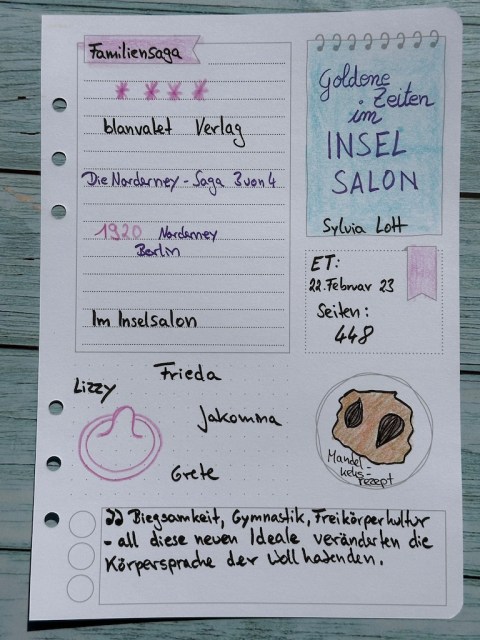 Familiensaga
* * * *
blanvalet Verlag
Die Norderney - Saga 3 von 4
1920 Norderney
Berlin
Im Inselsalon
Goldene
Zeiten
im
INSEL
SALON
Sylvia Lott
ET:
22. Februar 23
Seiten:
448
Frieda
Lizzy
Jakomina
Grete
Mandel
keks =
rezept
" Biegsamkeit, Gymnastik, Freikörperkultur
- all diese neuen Ideale veränderten die
Körpersprache der Wollhabenden.